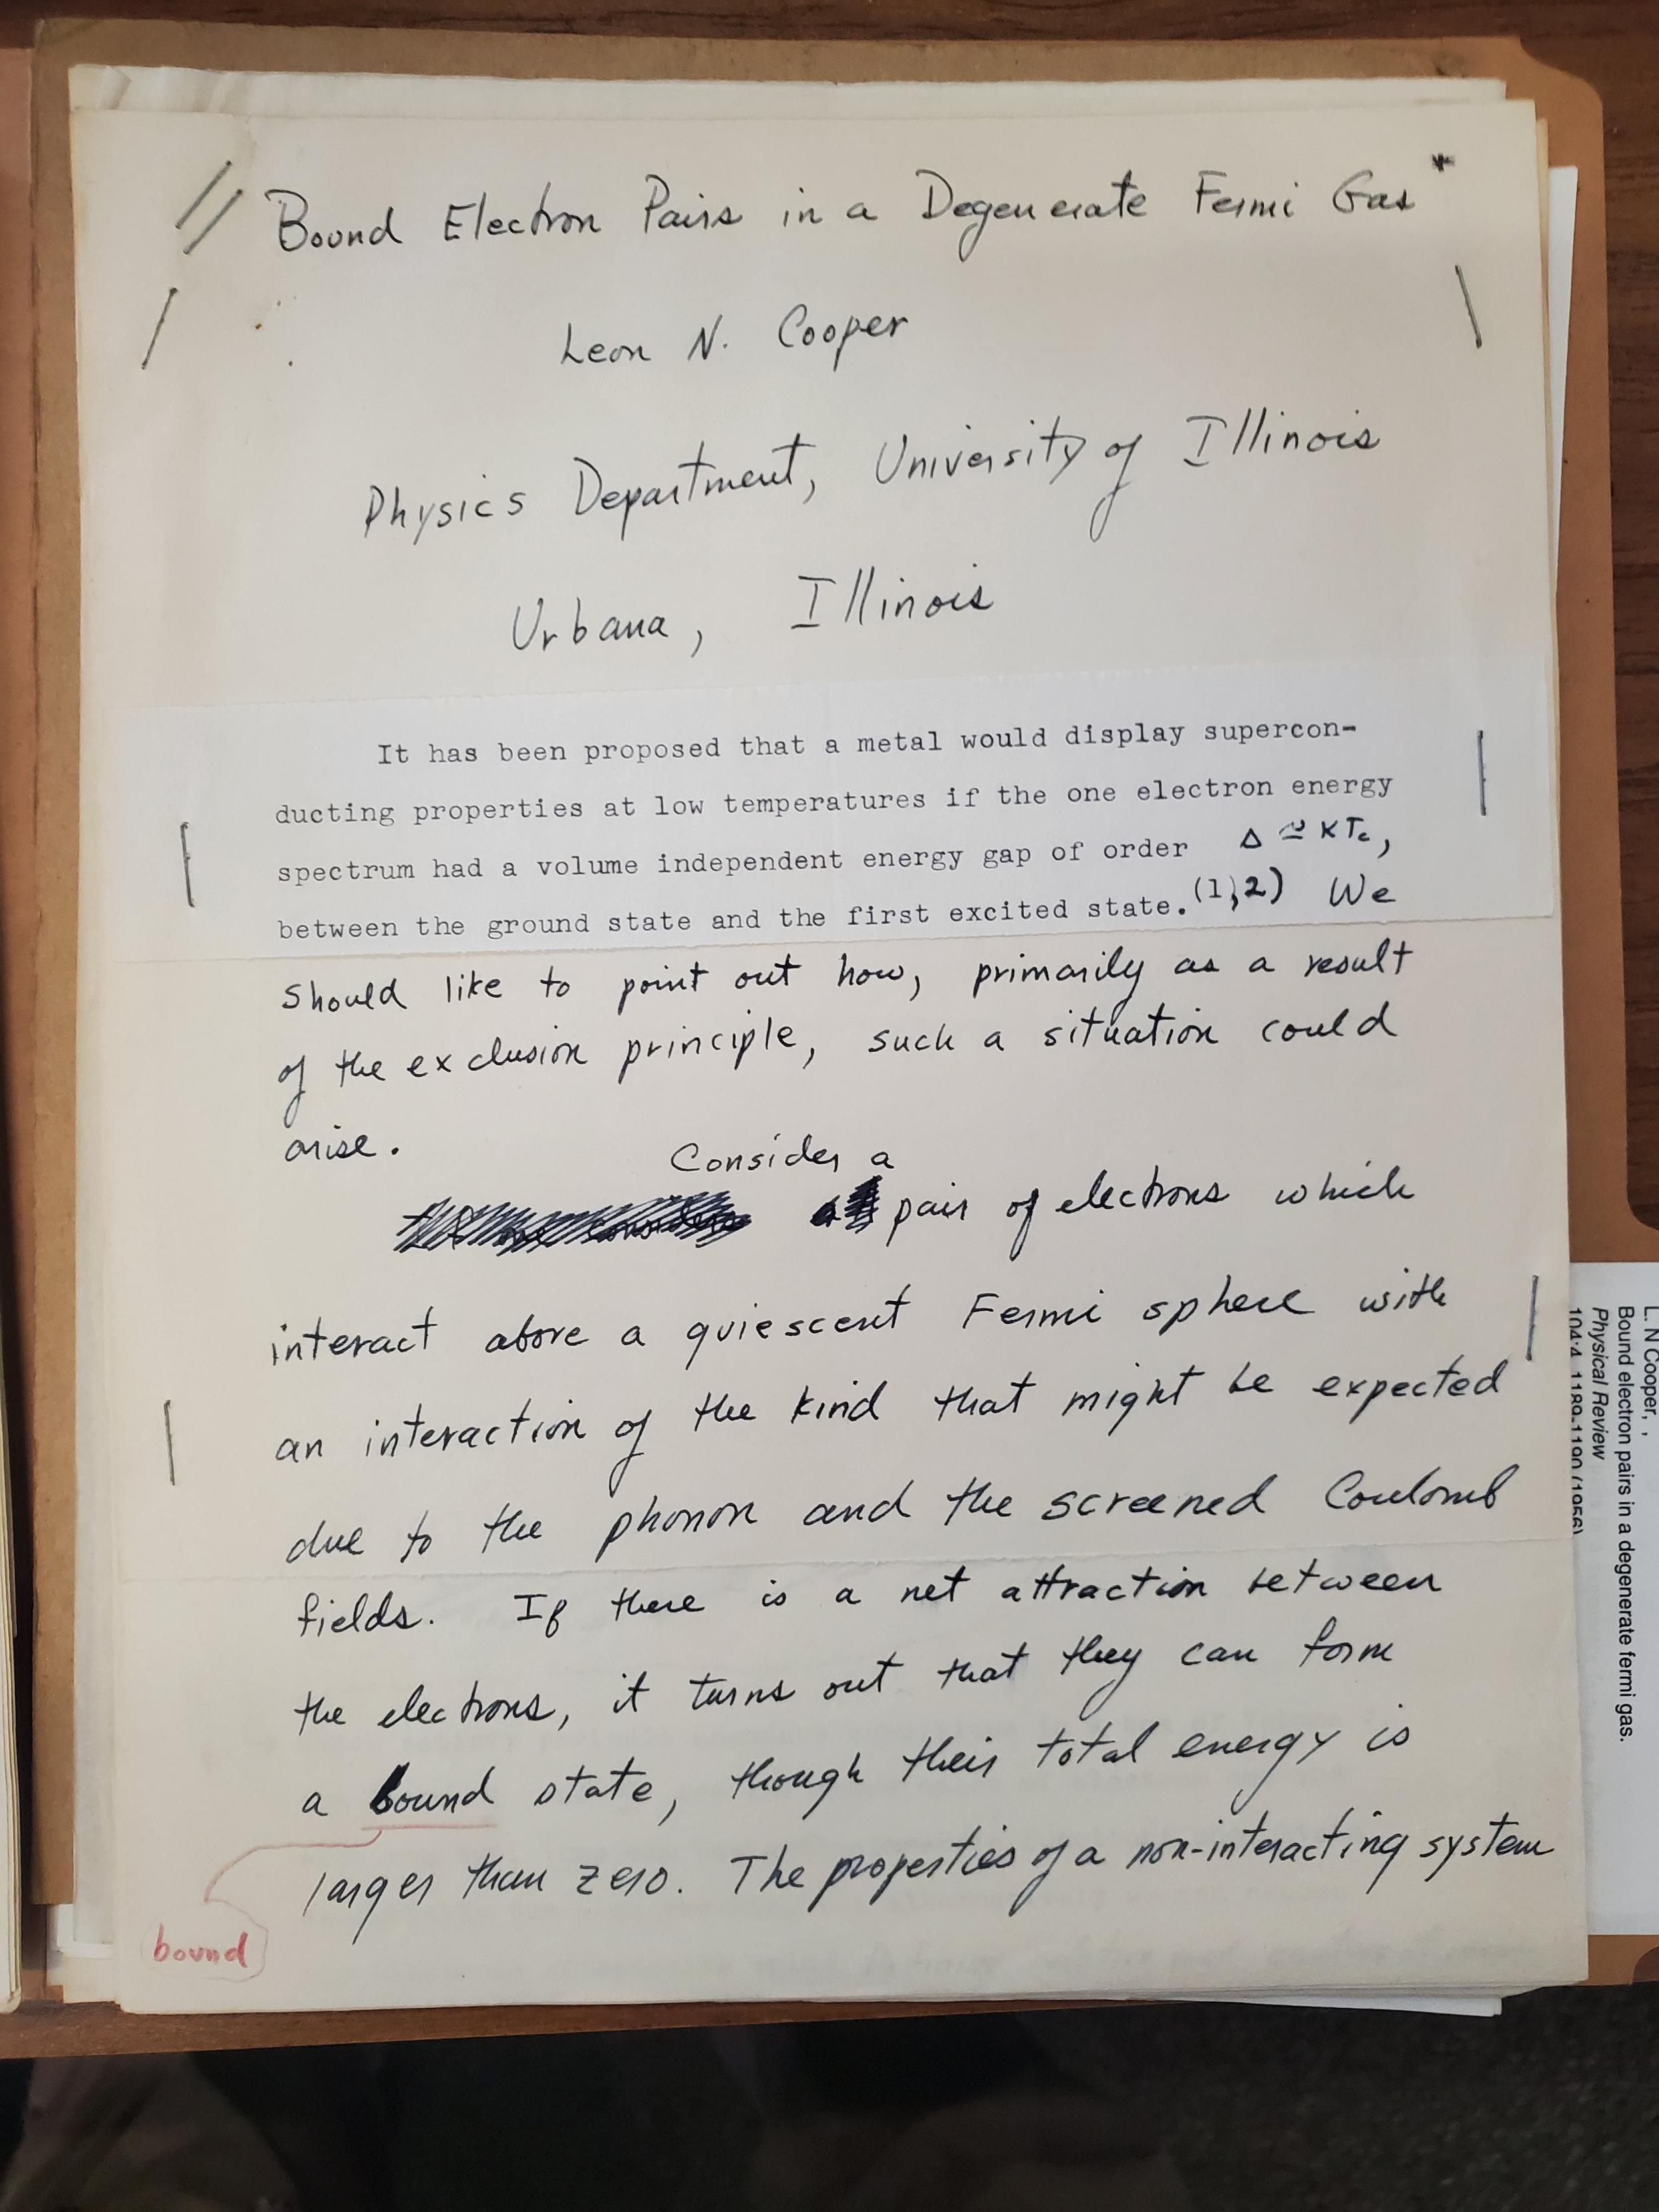 Bound Electron Pairs in a Degenerate Fermi Gas *
Leon N. Cooper
Physics Department, University of Illinois
Urbana, Illinois
It has been proposed that a metal would display supercon-
ducting properties at low temperatures if the one electron energy
spectrum had a volume independent energy gap of order Δ ≃ KTc,
between the ground state and the first excited state.(1,2) We
should like to point out how, primarily as a result
of the exclusion principle, such a situation could
arise.
Consider a
pair of electrons which
interact above a quiescent Fermi sphere with
an interaction of the kind that might be expected
due to the phonon and the screened Coulomb
fields. If there is a net attraction between
the electrons, it turns out that they can form
a bound state, though their total energy is
larger than zero. The properties of a non-interacting system
bound
L. N Cooper, ,
Bound electron pairs in a degenerate fermi gas.
Physical Review
104:4 1189-1190 (1956)